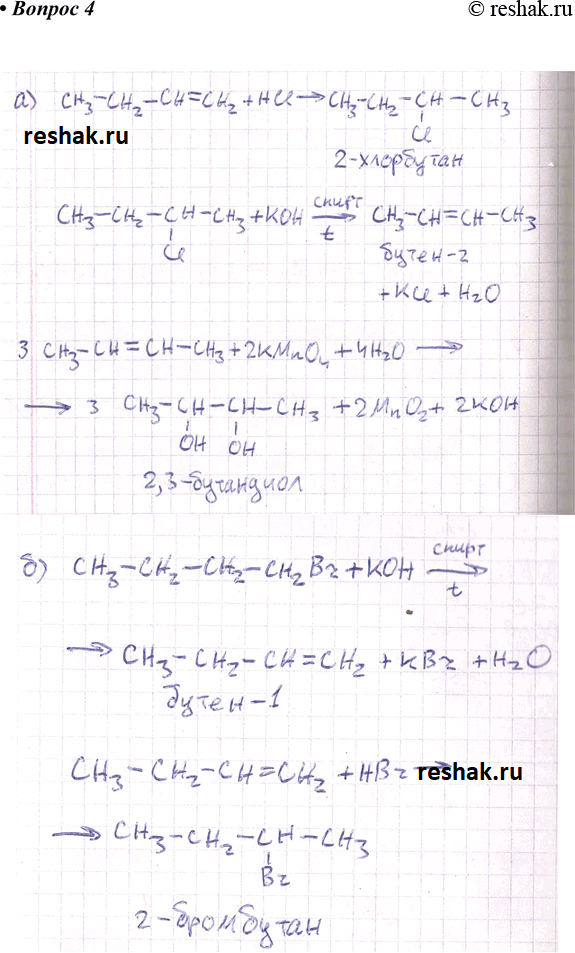 • Вопрос 4
© reshak.ru
а) CH₃-CH₂-CH=CH₂ + HCl → CH₃-CH₂-CH-CH₃
Cl
reshak.ru
2-хлорбутан
CH₃-CH₂-CH-CH₃ + KOH спирт t → CH₃-CH=CH-CH₃
Cl
бутен-2
+ KCl + H₂O
3 CH₃-CH=CH-CH₃ + 2KMnO₄ + 4H₂O →
→ 3 CH₃-CH-CH-CH₃ + 2MnO₂ + 2KOH
OH OH
2,3-бутандиол
б) CH₃-CH₂-CH₂-CH₂Br + KOH спирт t →
→ CH₃-CH₂-CH=CH₂ + KBr + H₂O
бутен-1
CH₃-CH₂-CH=CH₂ + HBr →
reshak.ru
→ CH₃-CH₂-CH-CH₃
Br
2-бромбутан